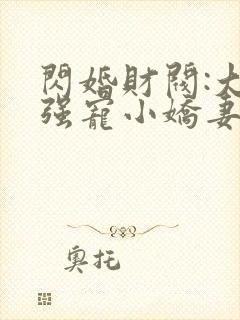 閃婚財閥:大
强寵小嬌妻
奧托